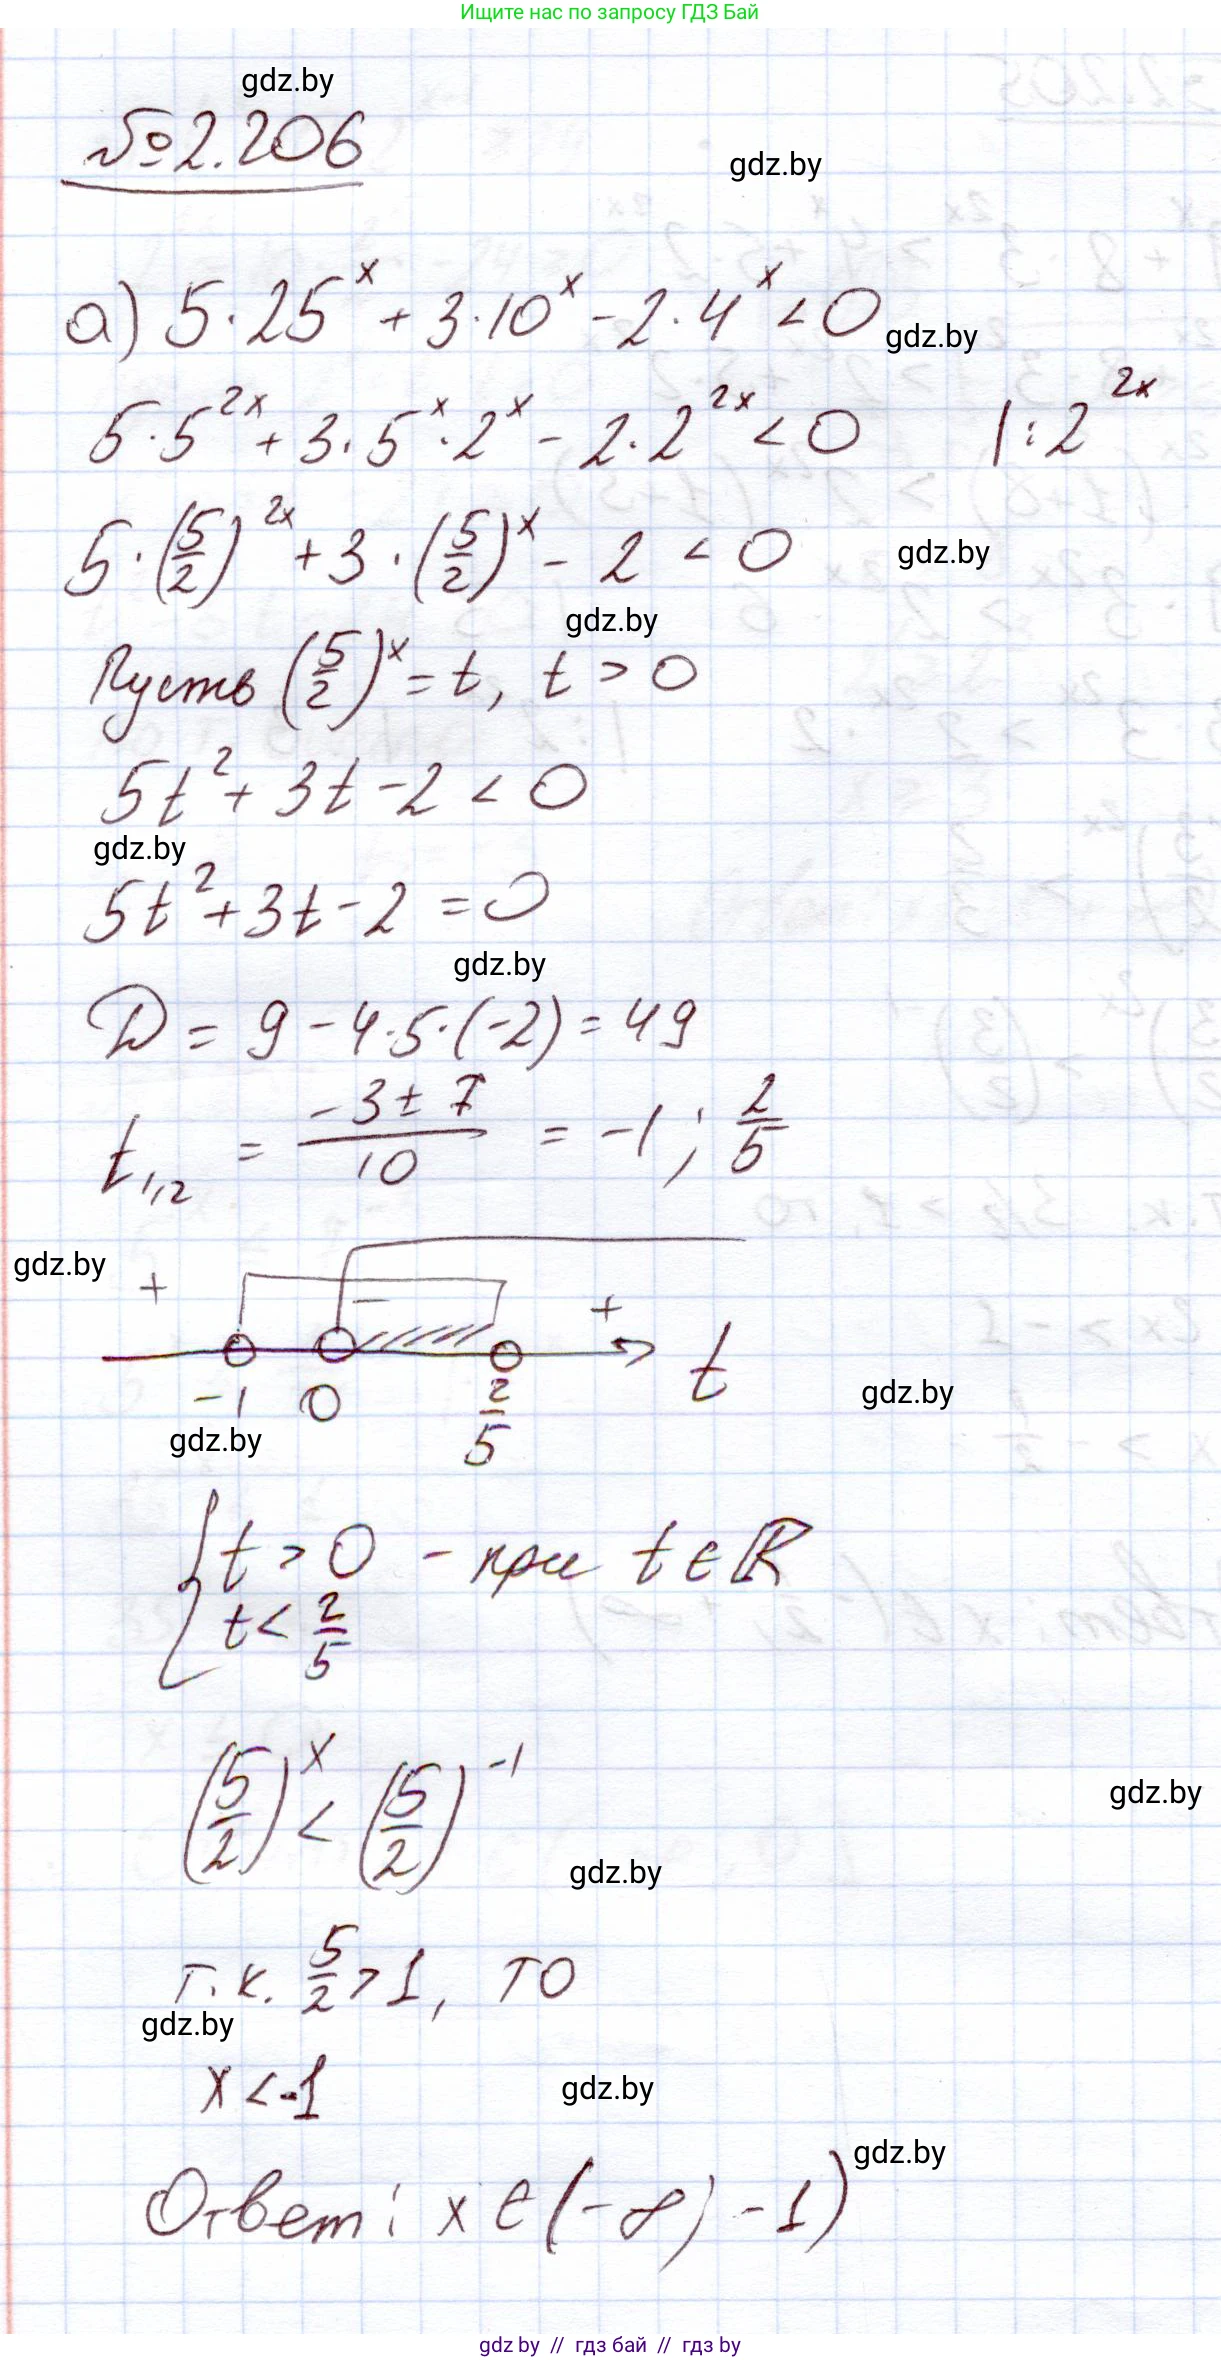 Ищите нас по запросу ГДЗ Бай
gdz.by
№2.206
gdz.by
а) 5·25^x + 3·10^x - 2·4^x < 0
gdz.by
5·5^2x + 3·5^x·2^x - 2·2^2x < 0 |:2^2x
5·(5/2)^2x + 3·(5/2)^x - 2 < 0
gdz.by
gdz.by
Пусть (5/2)^x = t, t > 0
5t² + 3t - 2 < 0
gdz.by
5t² + 3t - 2 = 0
gdz.by
D = 9 - 4·5·(-2) = 49
t1,2 = (-3 ± 7)/10 = -1; 2/5
gdz.by
+ - +
-1 0 2/5 t
gdz.by
gdz.by
{ t > 0 - при t ∈ ℝ
t < 2/5
(5/2)^x < (5/2)^-1
gdz.by
gdz.by
т.к. 5/2 > 1, то
gdz.by
x < -1
gdz.by
gdz.by
Ответ: x ∈ (-∞; -1)
gdz by // гдз бай // gdz by